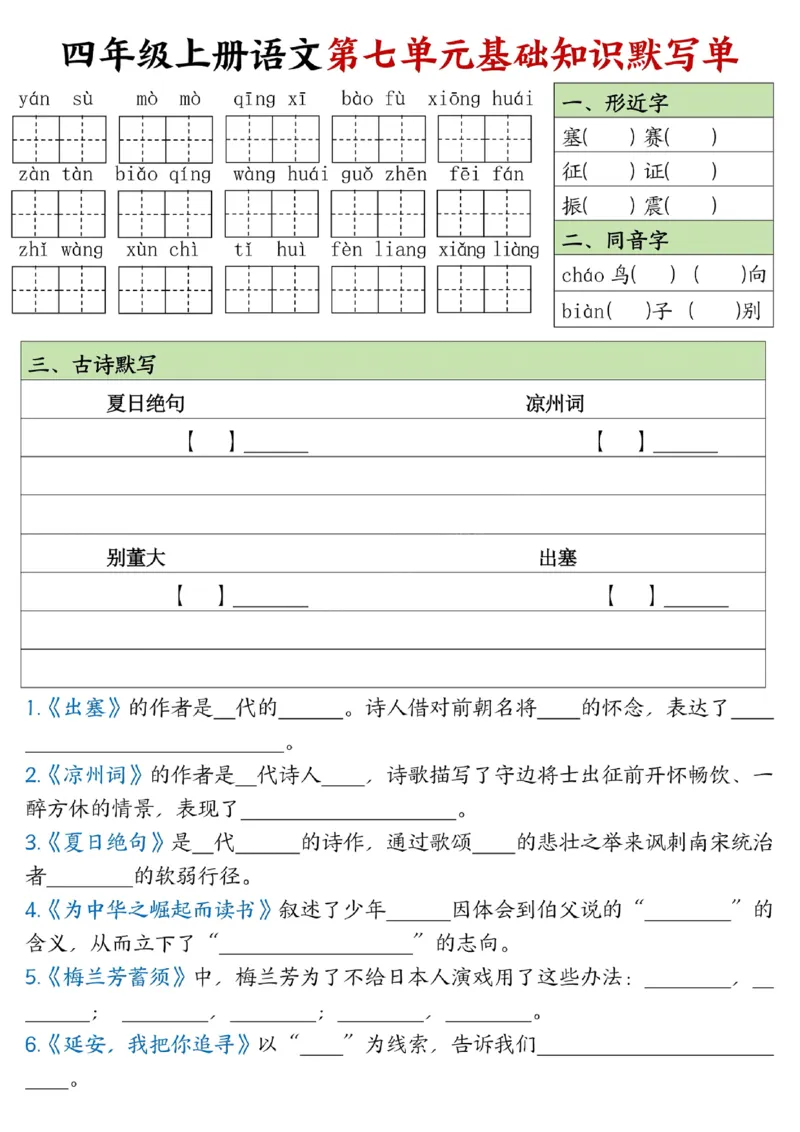 四年级上册语文第七单元基础知识默写单
yán sù mò mò qīng xī bào fù xiōng huái
zàn tàn biǎo qíng wàng huái guǒ zhēn fēi fán
zhǐ wàng xùn chì tǐ huì fèn liang xiǎng liàng
一、形近字
塞( ) 赛( )
征( ) 证( )
振( ) 震( )
二、同音字
cháo 鸟( ) ( )向
biàn( )子 ( )别
三、古诗默写
夏日绝句 凉州词
【 】______ 【 】______
别董大 出塞
【 】_______ 【 】______
1.《出塞》的作者是__代的______。诗人借对前朝名将____的怀念，表达了____
________________________。
2.《凉州词》的作者是__代诗人____，诗歌描写了守边将士出征前开怀畅饮、一
醉方休的情景，表现了____________________。
3.《夏日绝句》是__代______的诗作，通过歌颂____的悲壮之举来讽刺南宋统治
者________的软弱行径。
4.《为中华之崛起而读书》叙述了少年______因体会到伯父说的“________”的
含义，从而立下了“__________________”的志向。
5.《梅兰芳蓄须》中，梅兰芳为了不给日本人演戏用了这些办法：________，__
______； ________，________；________，________。
6.《延安，我把你追寻》以“____”为线索，告诉我们______________________
____。